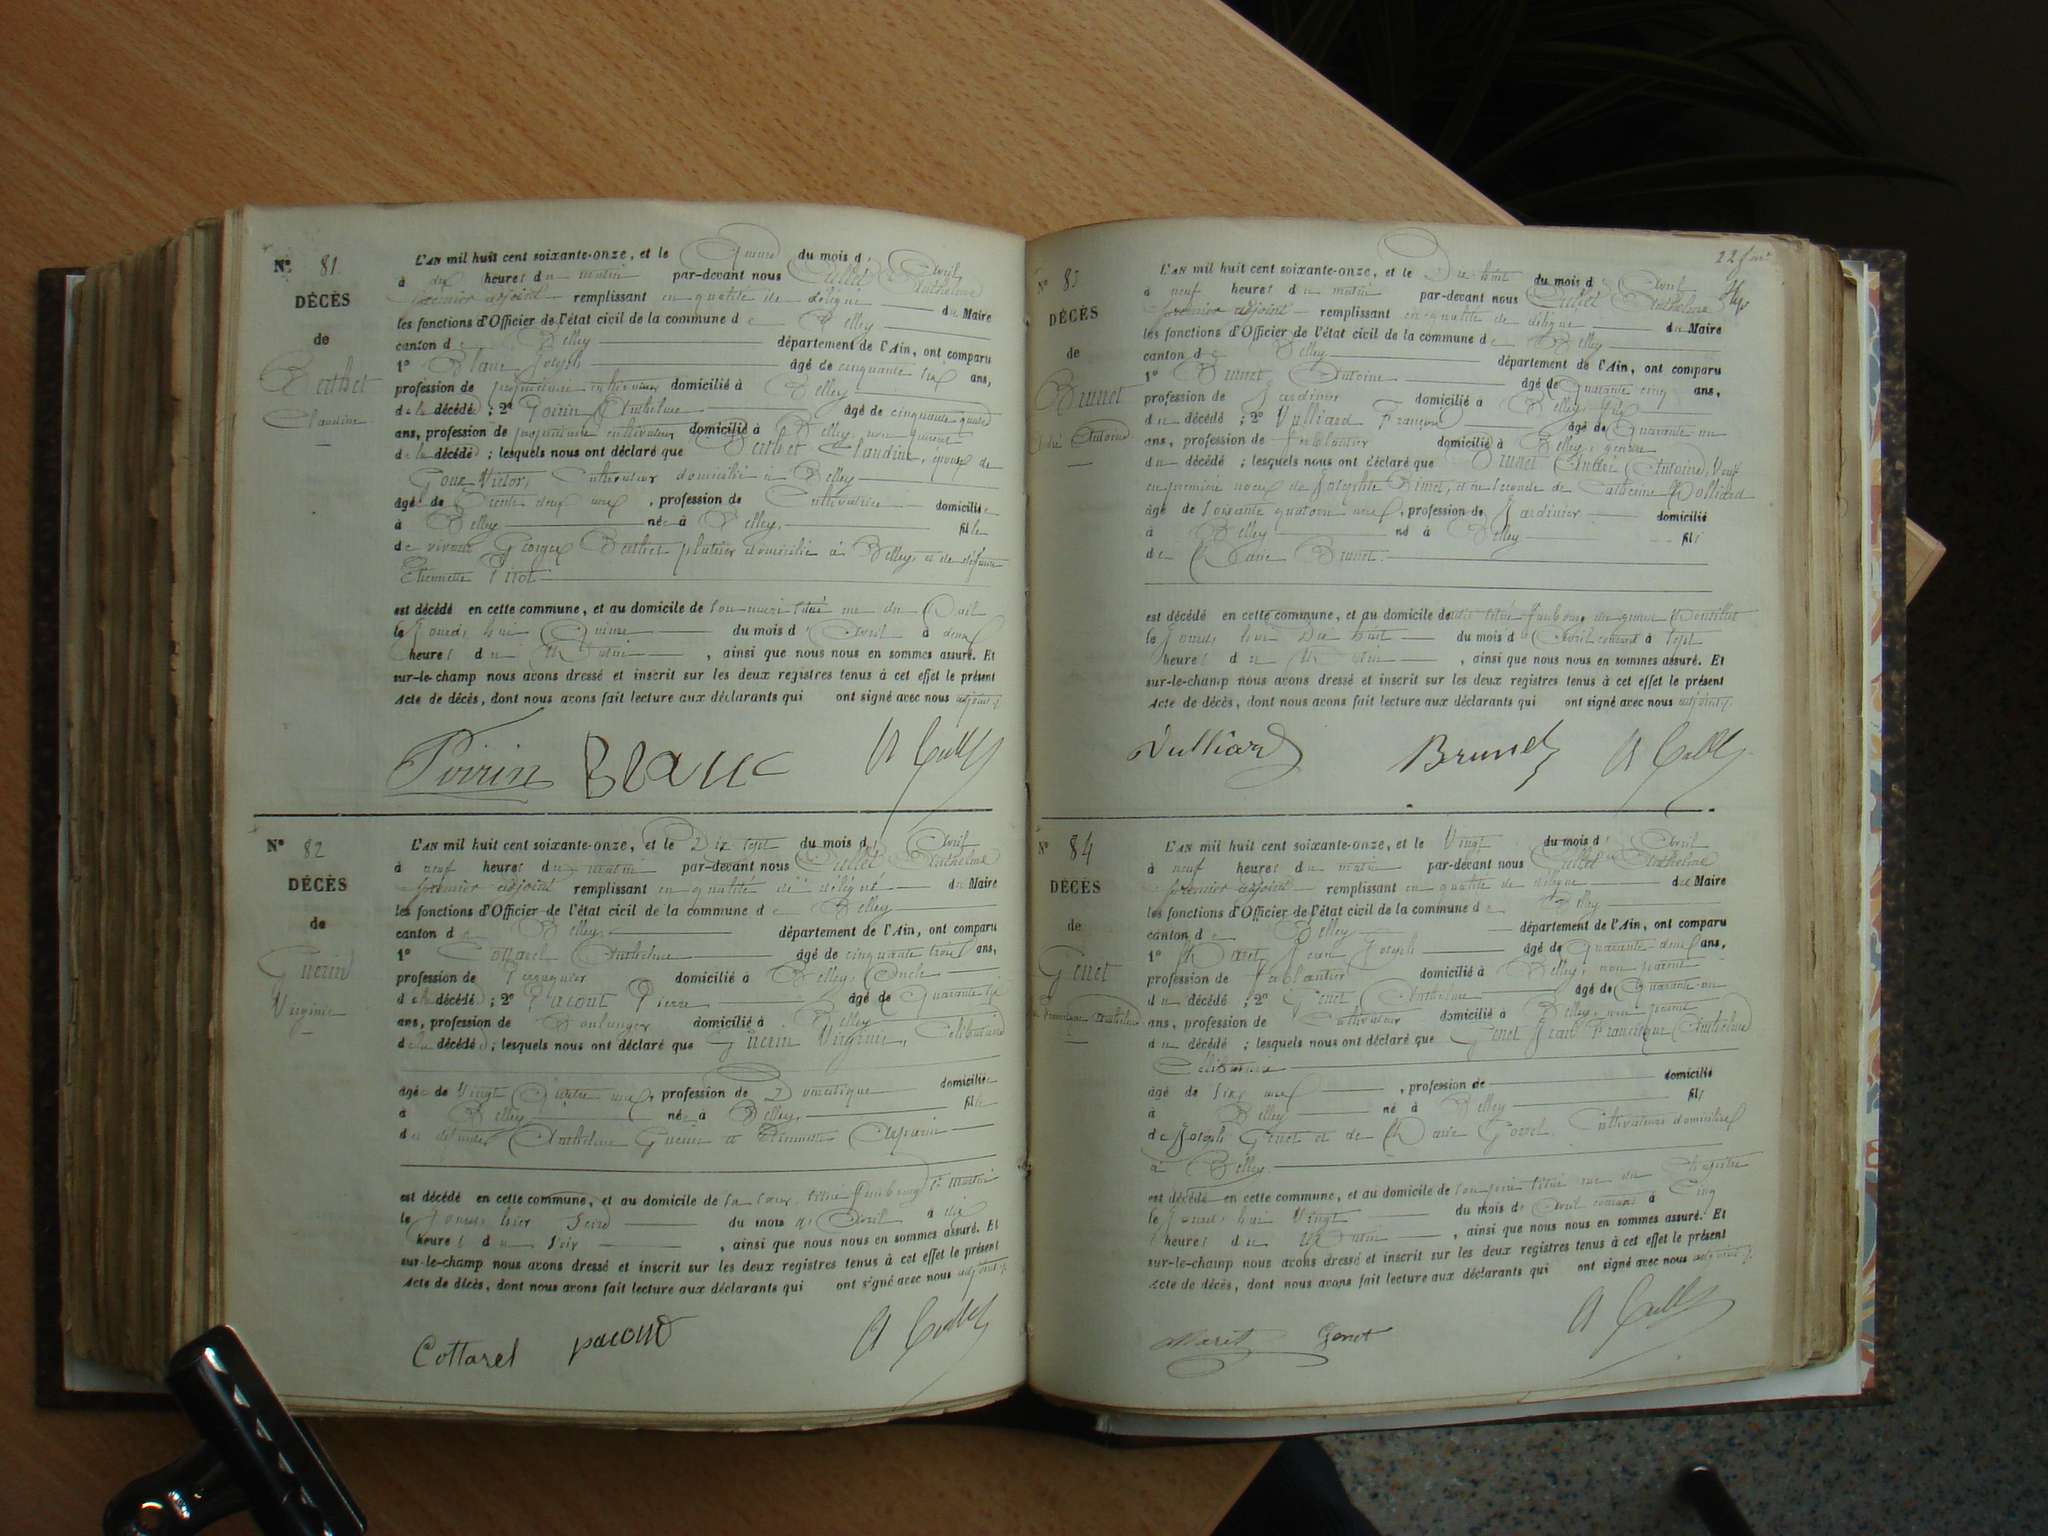 N° 81
DÉCÈS
de
Berthet
Claudine
L'AN mil huit cent soixante-onze, et le Quinze du mois d'Avril
à dix heures du matin par-devant nous Cullet Anthelme
premier adjoint remplissant en qualité de délégué du Maire
les fonctions d'Officier de l'état civil de la commune de Belley
canton de Belley département de l'Ain, ont comparu
1° Blanc Joseph âgé de cinquante six ans,
profession de propriétaire cultivateur domicilié à Belley
de la décédé ; 2° Poirin Anthelme âgé de cinquante quatre
ans, profession de propriétaire cultivateur domicilié à Belley non parent
de la décédé ; lesquels nous ont déclaré que Berthet Claudine, épouse de
Victor, Cultivateur domicilié à Belley
âgé de Trente deux ans, profession de Cultivatrice domiciliée
à Belley née à Belley, fille
de vivant Georges Berthet plâtrier domicilié à Belley, et de défunte
Etiennette
est décédé en cette commune, et au domicile de son mari situé rue du
le Jourd'hui Quinze du mois d'Avril à deux
heures du Matin, ainsi que nous nous en sommes assuré. Et
sur-le-champ nous avons dressé et inscrit sur les deux registres tenus à cet effet le présent
Acte de décès, dont nous avons fait lecture aux déclarants qui ont signé avec nous adjoint.
Poirin Blanc A Cullet
N° 82
DÉCÈS
de
Guerin
Virginie
L'AN mil huit cent soixante-onze, et le Dix sept du mois d'Avril
à neuf heures du matin par-devant nous Cullet Anthelme
premier adjoint remplissant en qualité de délégué du Maire
les fonctions d'Officier de l'état civil de la commune de Belley
canton de Belley, département de l'Ain, ont comparu
1° Cottarel Anthelme âgé de cinquante trois ans,
profession de Perruquier domicilié à Belley, Oncle
de la décédé ; 2° Pacout Pierre âgé de Quarante six
ans, profession de Boulanger domicilié à Belley
de la décédé ; lesquels nous ont déclaré que Guerin Virginie, Célibataire
âgée de Vingt Quatre ans, profession de Domestique domiciliée
à Belley née à Belley, fille
de défunts Anthelme Guerin et Etiennette
est décédé en cette commune, et au domicile de sa sœur, situé faubourg St Martin
le Jour d'hier Seize du mois d'Avril à dix
heures du Soir, ainsi que nous nous en sommes assuré. Et
sur-le-champ nous avons dressé et inscrit sur les deux registres tenus à cet effet le présent
Acte de décès, dont nous avons fait lecture aux déclarants qui ont signé avec nous adjoint.
Cottarel pacout A Cullet
N° 83
DÉCÈS
de
Brunet
André Antoine
L'AN mil huit cent soixante-onze, et le Dix huit du mois d'Avril
à neuf heures du matin par-devant nous Cullet Anthelme
premier adjoint remplissant en qualité de délégué du Maire
les fonctions d'Officier de l'état civil de la commune de Belley
canton de Belley département de l'Ain, ont comparu
1° Brunet Antoine âgé de Quarante cinq ans,
profession de Jardinier domicilié à Belley, fils
du décédé ; 2° Vulliard François âgé de Quarante un
ans, profession de Ferblantier domicilié à Belley, gendre
du décédé ; lesquels nous ont déclaré que Brunet André Antoine, Veuf
en première noces de Josephte Binet, et en seconde de Catherine Molliard
âgé de Soixante quatorze ans, profession de Jardinier domicilié
à Belley né à Belley fils
de Brunet
est décédé en cette commune, et au domicile
le Jourd'hui Dix huit du mois d'Avril courant à Sept
heures du Matin, ainsi que nous nous en sommes assuré. Et
sur-le-champ nous avons dressé et inscrit sur les deux registres tenus à cet effet le présent
Acte de décès, dont nous avons fait lecture aux déclarants qui ont signé avec nous adjoint.
Vulliard Brunet A Cullet
N° 84
DÉCÈS
de
Genet
Jean Francisque Anthelme
L'AN mil huit cent soixante-onze, et le Vingt du mois d'Avril
à neuf heures du matin par-devant nous Cullet Anthelme
premier adjoint remplissant en qualité de délégué du Maire
les fonctions d'Officier de l'état civil de la commune de Belley
canton de Belley département de l'Ain, ont comparu
1° Maret Jean Joseph âgé de Quarante deux ans,
profession de Ferblantier domicilié à Belley, non parent
du décédé ; 2° Genet, Anthelme âgé de Quarante un
ans, profession de Cultivateur domicilié à Belley, non parent
du décédé ; lesquels nous ont déclaré que Genet Jean Francisque Anthelme
Célibataire
âgé de Six ans, profession de domicilié
à Belley né à Belley fils
de Joseph Genet et de Marie Cultivateurs domiciliés
à Belley
est décédé en cette commune, et au domicile de son père situé rue du Chapitre
le Jourd'hui Vingt du mois d'Avril courant à Cinq
heures du Matin, ainsi que nous nous en sommes assuré. Et
sur-le-champ nous avons dressé et inscrit sur les deux registres tenus à cet effet le présent
Acte de décès, dont nous avons fait lecture aux déclarants qui ont signé avec nous adjoint.
Maret Genet A Cullet